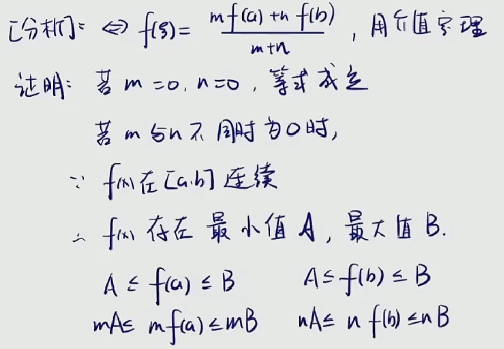 [分析]: ⇔ f(ξ) = (mf(a)+nf(b))/(m+n), 用介值定理
证明: 若 m=0, n=0, 等式成立
若m与n不同时为0时,
∵ f(x)在[a.b]连续
∴ f(x)存在最小值A, 最大值B.
A ≤ f(a) ≤ B A ≤ f(b) ≤ B
mA ≤ mf(a) ≤ mB nA ≤ nf(b) ≤ nB